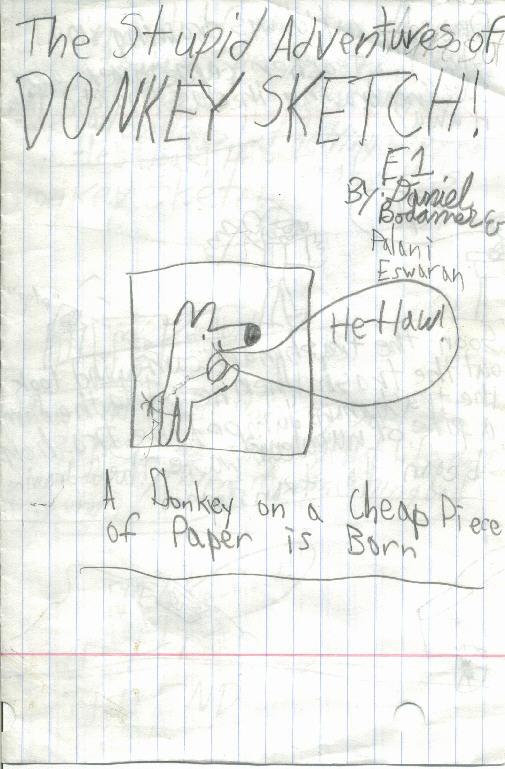 The Stupid Adventures of
DONKEY SKETCH!
E1
By: Daniel
Bodamer &
Palani
Eswaran
He-Haw!
A Donkey on a Cheap Piece
of Paper is Born